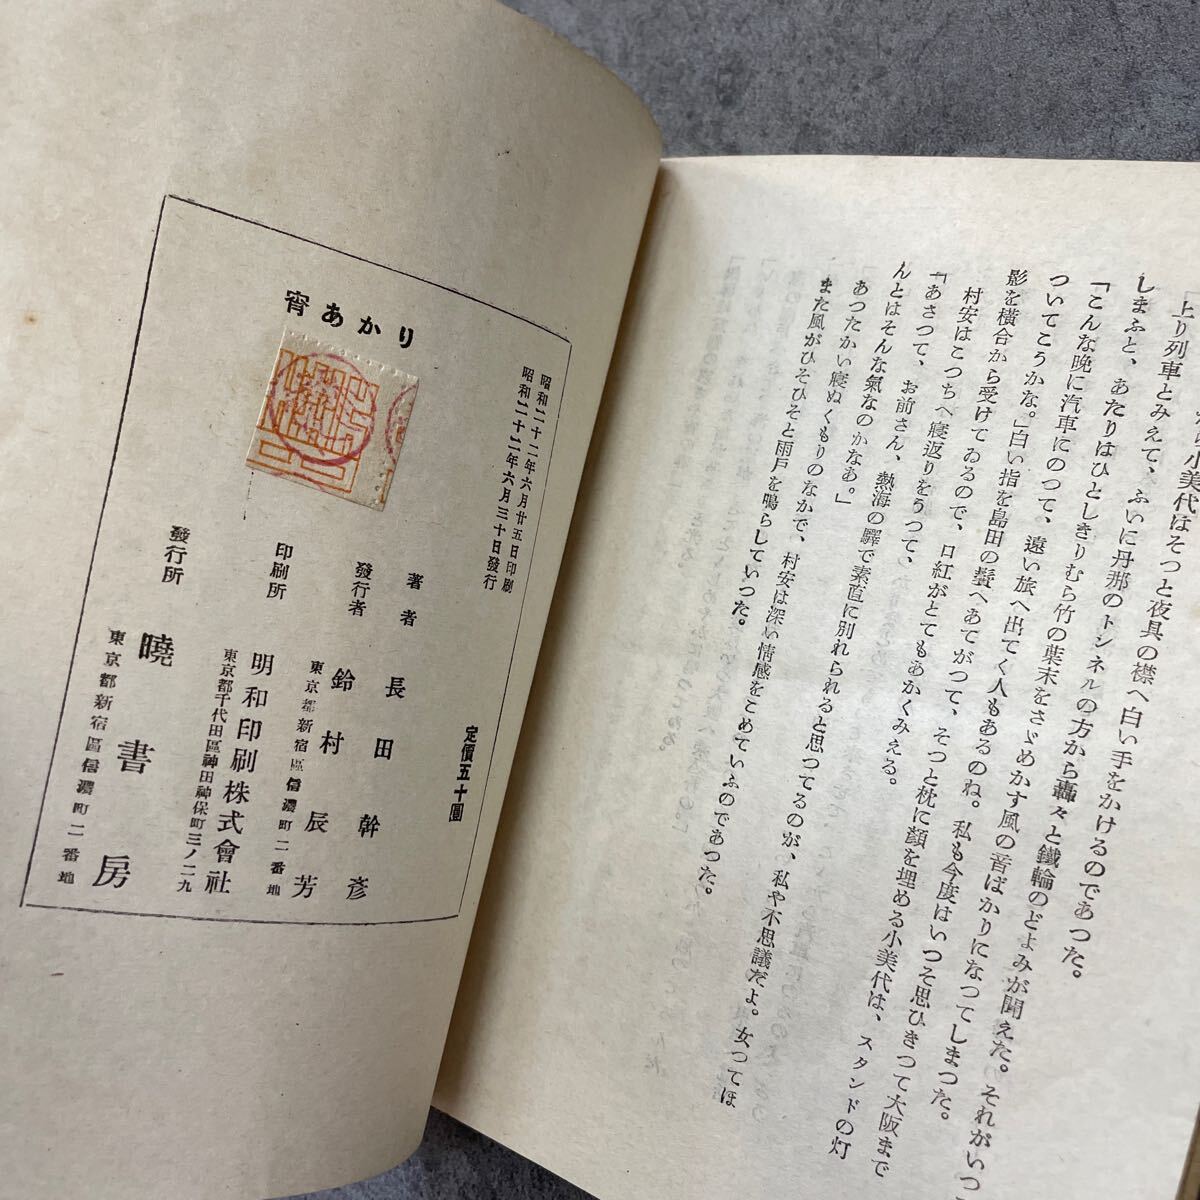 小美代はそつと夜具の襟へ白い手をかけるのであつた。
上り列車とみえて、ふいに丹那のトンネルの方から轟々と鐵輪のどよみが聞えた。それがいつ
しまふと、あたりはひとしきりむら竹の葉末をさゞめかす風の音ばかりになつてしまつた。
「こんな晩に汽車にのつて、遠い旅へ出てく人もあるのね。私も今度はいつそ思ひきつて大阪まで
ついてこうかな。」白い指を島田の鬢へあてがつて、そつと枕に顏を埋める小美代は、スタンドの灯
影を橫合から受けてゐるので、口紅がとてもあかくみえる。
村安はこつちへ寢返りをうつて、
「あさつて、お前さん、熱海の驛で素直に別れられると思つてるのが、私や不思議だよ。女つてほ
んとはそんな氣なのかなあ。」
あつたかい寢ぬくもりのなかで、村安は深い情感をこめていふのであつた。
また風がひそひそと雨戶を鳴らしていつた。
宵あかり
昭和二十二年六月廿五日印刷
昭和二十二年六月三十日發行
定價五十圓
著者 長田幹彥
發行者 鈴村辰芳
東京都新宿區信濃町二番地
印刷所 明和印刷株式會社
東京都千代田區神田神保町三ノ二九
發行所 曉書房
東京都新宿區信濃町二番地